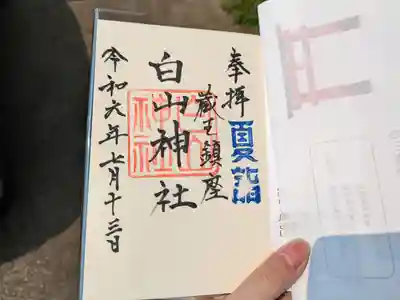 奉拝
夏詣
蔵王鎮座
白山神社
令和六年七月十三日